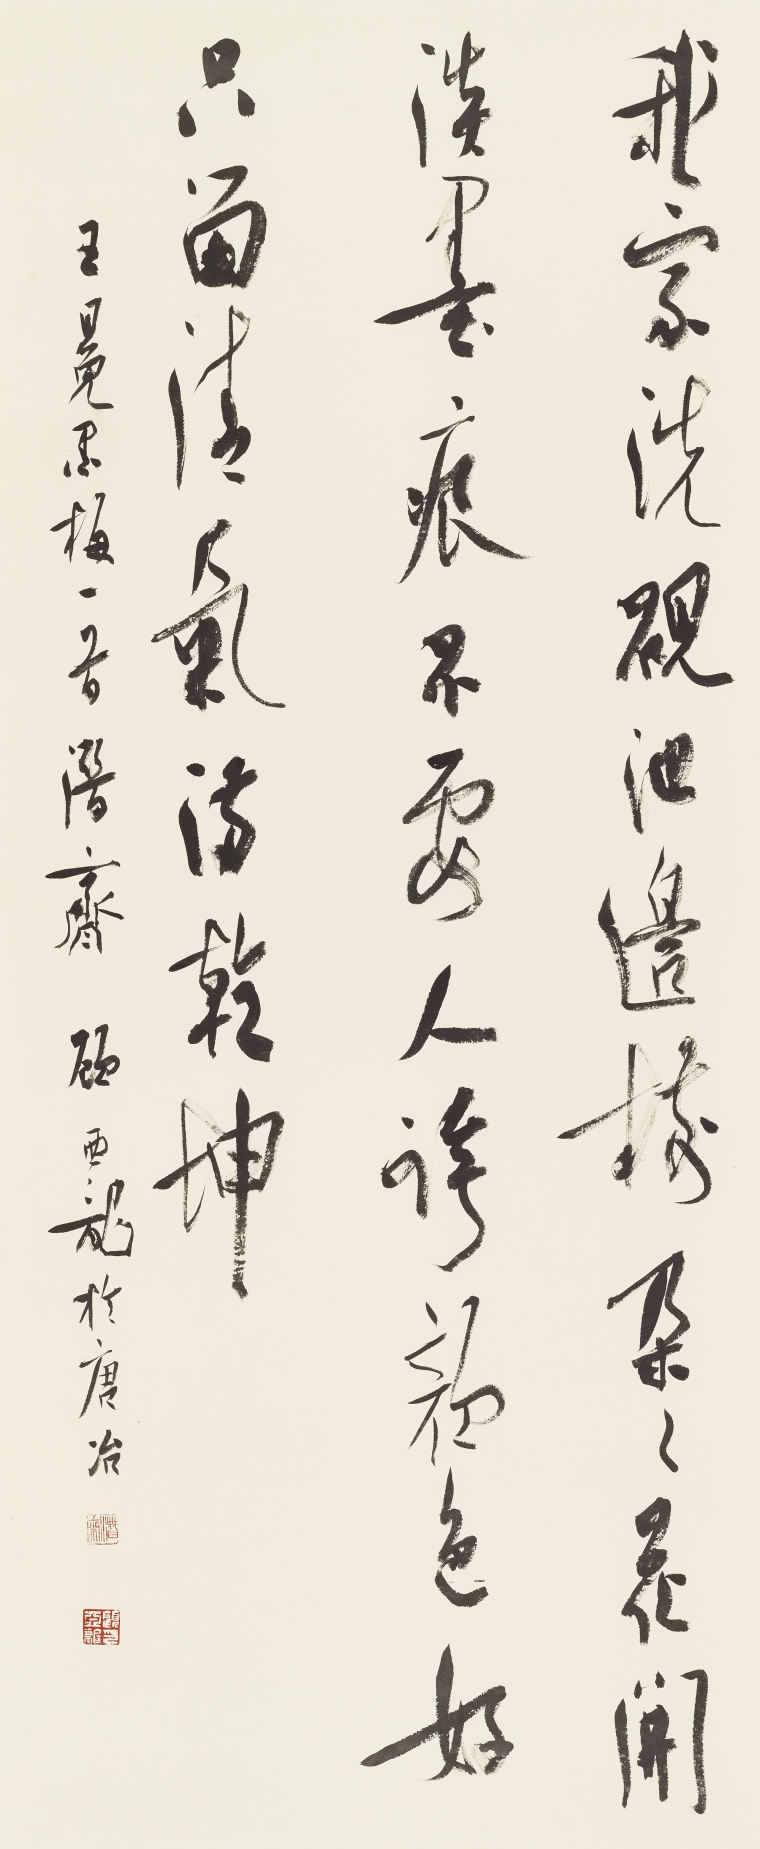 我家洗硯池邊樹朶々花開
淡墨痕不要人誇顏色好
只留清氣滿乾坤
王冕墨梅一首潛齋 顧亞龍於唐冶